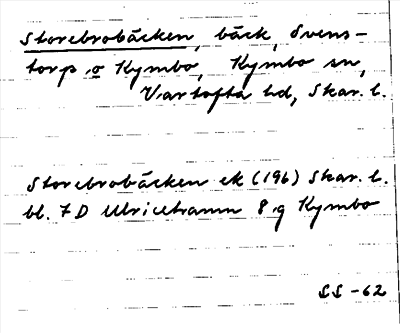 Storebrobäcken, bäck, Svens-
torp o Kymbo, Kymbo sn,
Vartofta hd, Skar. l.
Storebrobäcken ek (196) Skar. l.
bl. 7D Ulricehamn 8 g Kymbo
SS -62